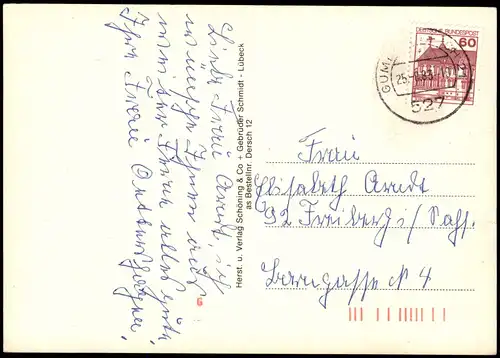 Liebe Frau Arndt, ich
wünsche Ihnen auch
weiter Ferne alles Gute
Ihre Frau
Herst. u. Verlag Schöning & Co + Gebrüder Schmidt - Lübeck
as Bestellnr. Dersch 12
6
DEUTSCHE BUNDESPOST
60
GUM
527
Frau
Elisabeth Arndt
92 Freiberg / Sachs.
Borngasse N 4